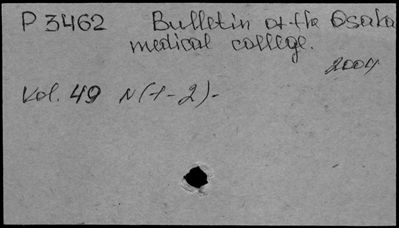 P 3462 Bulletin of the Osaka
medical college.
2004
Vol. 49 N(1-2)-